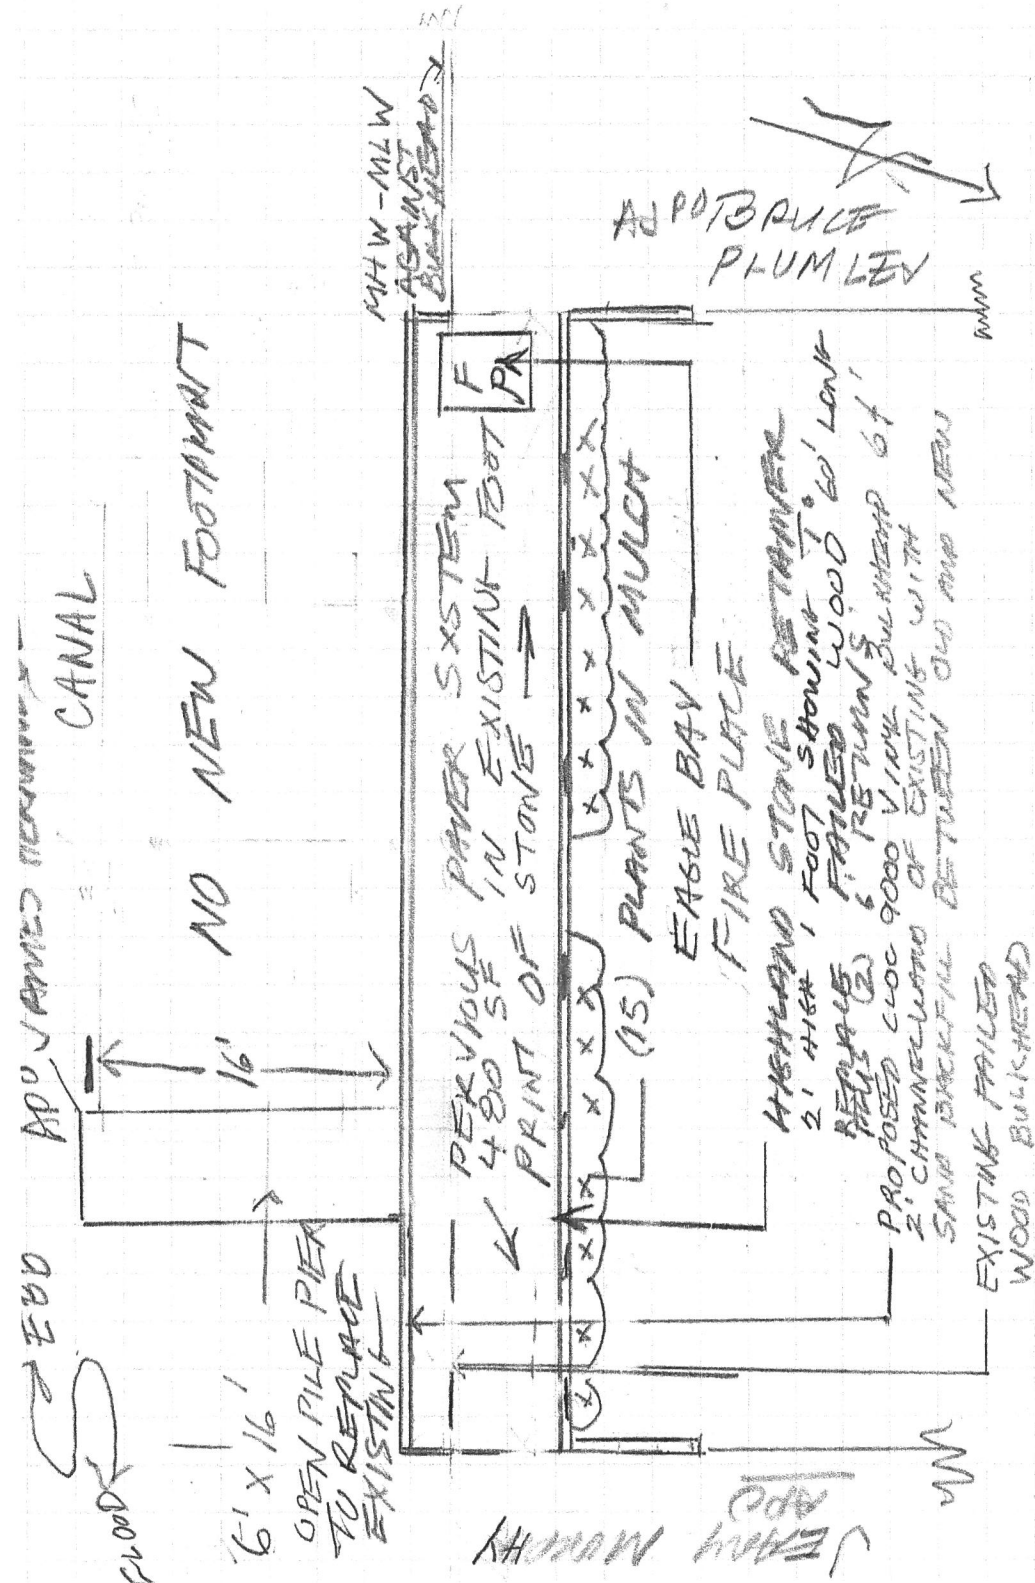 EBB
FLOOD
CANAL
NO NEW FOOTPRINT
16'
6' x 16'
OPEN PILE PIER
TO REPLACE
EXISTING
MHW-MLW
AGAINST
BULKHEAD
PERVIOUS PAVER SYSTEM
480 SF IN EXISTING FOOT
PRINT OF STONE
F
P
(15) PLANTS IN MULCH
EAGLE BAY
FIRE PLACE
HIGHLAND STONE RETAINER
2' HIGH 1 FOOT SHOWING TO
REPLACE FAILED WOOD 60' LONG
PLUS (2) 6' RETURNS
PROPOSED CLOC 9000 VINYL BULKHEAD 61'
2' CHANNELWARD OF EXISTING WITH
SAND BACKFILL BETWEEN OLD AND NEW
EXISTING FAILED
WOOD BULKHEAD
BRUCE
PLUMLEY
APO